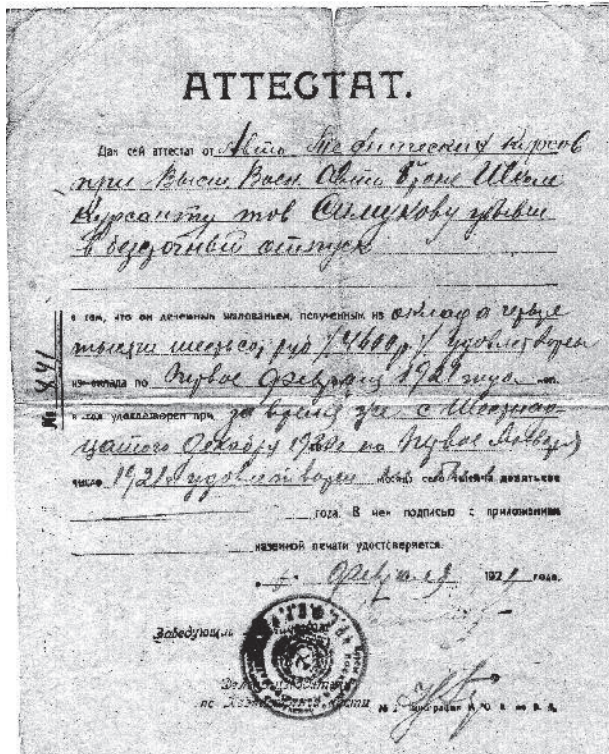 АТТЕСТАТ.
Дан сей аттестат от Авто Технических Курсов
при Высш. Воен. Авто Броне Школе
Курсанту тов Симукову
в отпуск
в том, что он денежным жалованьем, полученным из оклада четыре
тысячи шестьсот руб /4600 р/ удовлетворен
из оклада по Первое Февраля 1921 года
удовлетворен при за время же с Шестнад-
цатого Декабря 1920 г по Первое Января
число 1921 г удовлетворен месяц сего тысяча девятьсот
года. В чем подписью с приложением
казенной печати удостоверяется.
Февраля 1921 года.
Заведующий
по Хозяйственной части
№ 841